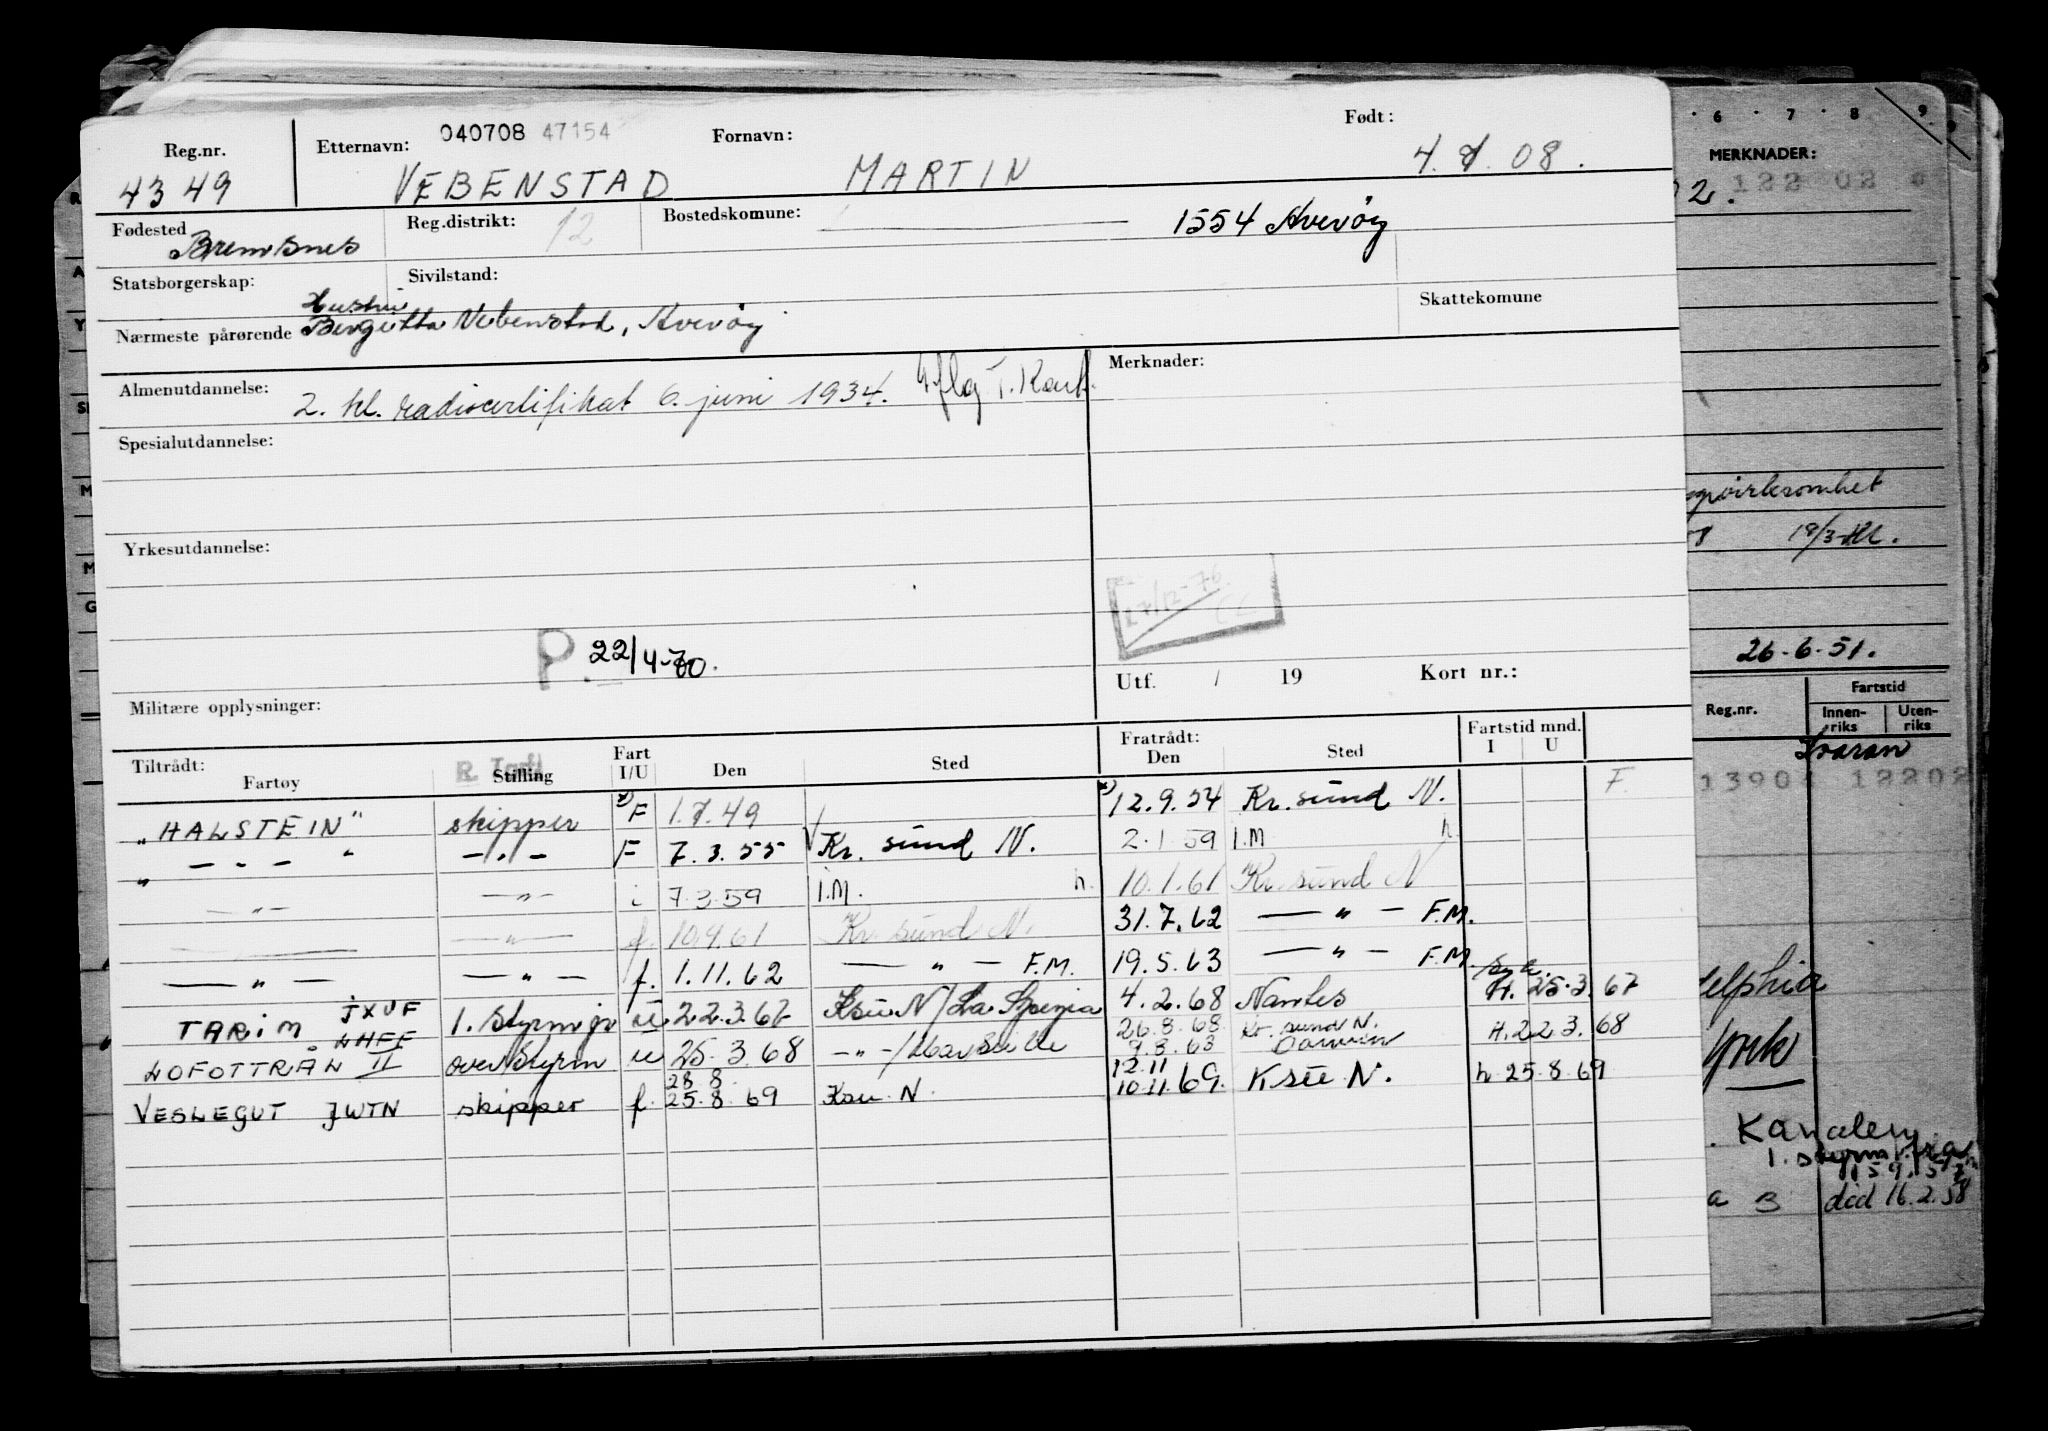 Reg.nr. Etternavn: 040708 47154 Fornavn: Født:
4349 VEBENSTAD MARTIN 4.7.08.
Fødested Bremsnes Reg.distrikt: 12 Bostedskomune: 1554 Averöy
Statsborgerskap: Sivilstand:
Hustru Skattekomune
Nærmeste pårørende Birgitta Vebenstad, Averöy
Almenutdannelse: 2. kl. radiocertifikat 6. juni 1934. Merknader:
Spesialutdannelse:
Yrkesutdannelse:
27/12-76
P. 22/4-70.
Utf. / 19 Kort nr.:
Militære opplysninger:
Tiltrådt: Fratrådt: Fartstid mnd.
Fartøy Stilling Fart I/U Den Sted Den Sted I U
„HALSTEIN" skipper x) F 1.7.49 x) 12.9.54 Kr.sund N. F.
„ — „ — " — „ — F 7.3.55 Kr. sund N. 2.1.59 I.M h.
— „ — — „ — i 7.3.59 I.M. h. 10.1.61 Kr.sund N
— — „ — f. 10.9.61 Kr. sund N. 31.7.62 — „ — F.M.
— „ — — „ — f. 1.11.62 — „ — F.M. 19.5.63 — „ — F.M.
TARIM JXUF 1. Styrm u 22.3.67 Ksu N/La Spezia 4.2.68 Nantes H. 25.3.67
LOFOTTRÅL II LHFF overstyrm u 25.3.68 — „ — 26.8.68 Kr.sund N. H. 22.3.68
VESLEGUT JWTN skipper f. 28.8 25.8.69 Ksu N. 12.11 10.11.69. Ksu N. h 25.8.69
6 · 7 · 8 9
MERKNADER:
2. 122 02
virksomhet
26-6-51.
Reg.nr. Fartstid
Innen-riks Uten-riks
Ivaran
1390 12202
elphia
Kanalen
1. styrm
a B död 16.2.58